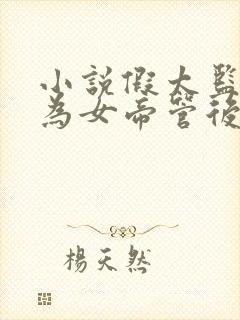 小說假太監
為女帝管後
楊天然